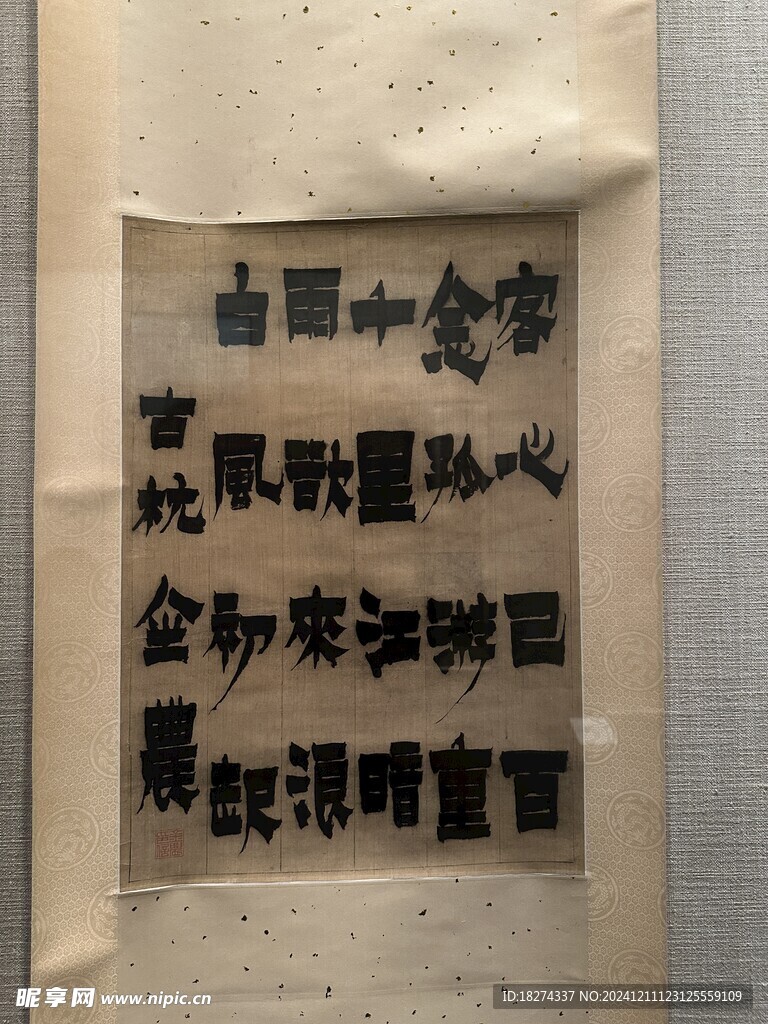 客心已百
念孤游重
千里江暗
雨欲來浪
白風初起
古杭金農
昵享网 www.nipic.cn
ID:18274337 NO:20241211123125559109